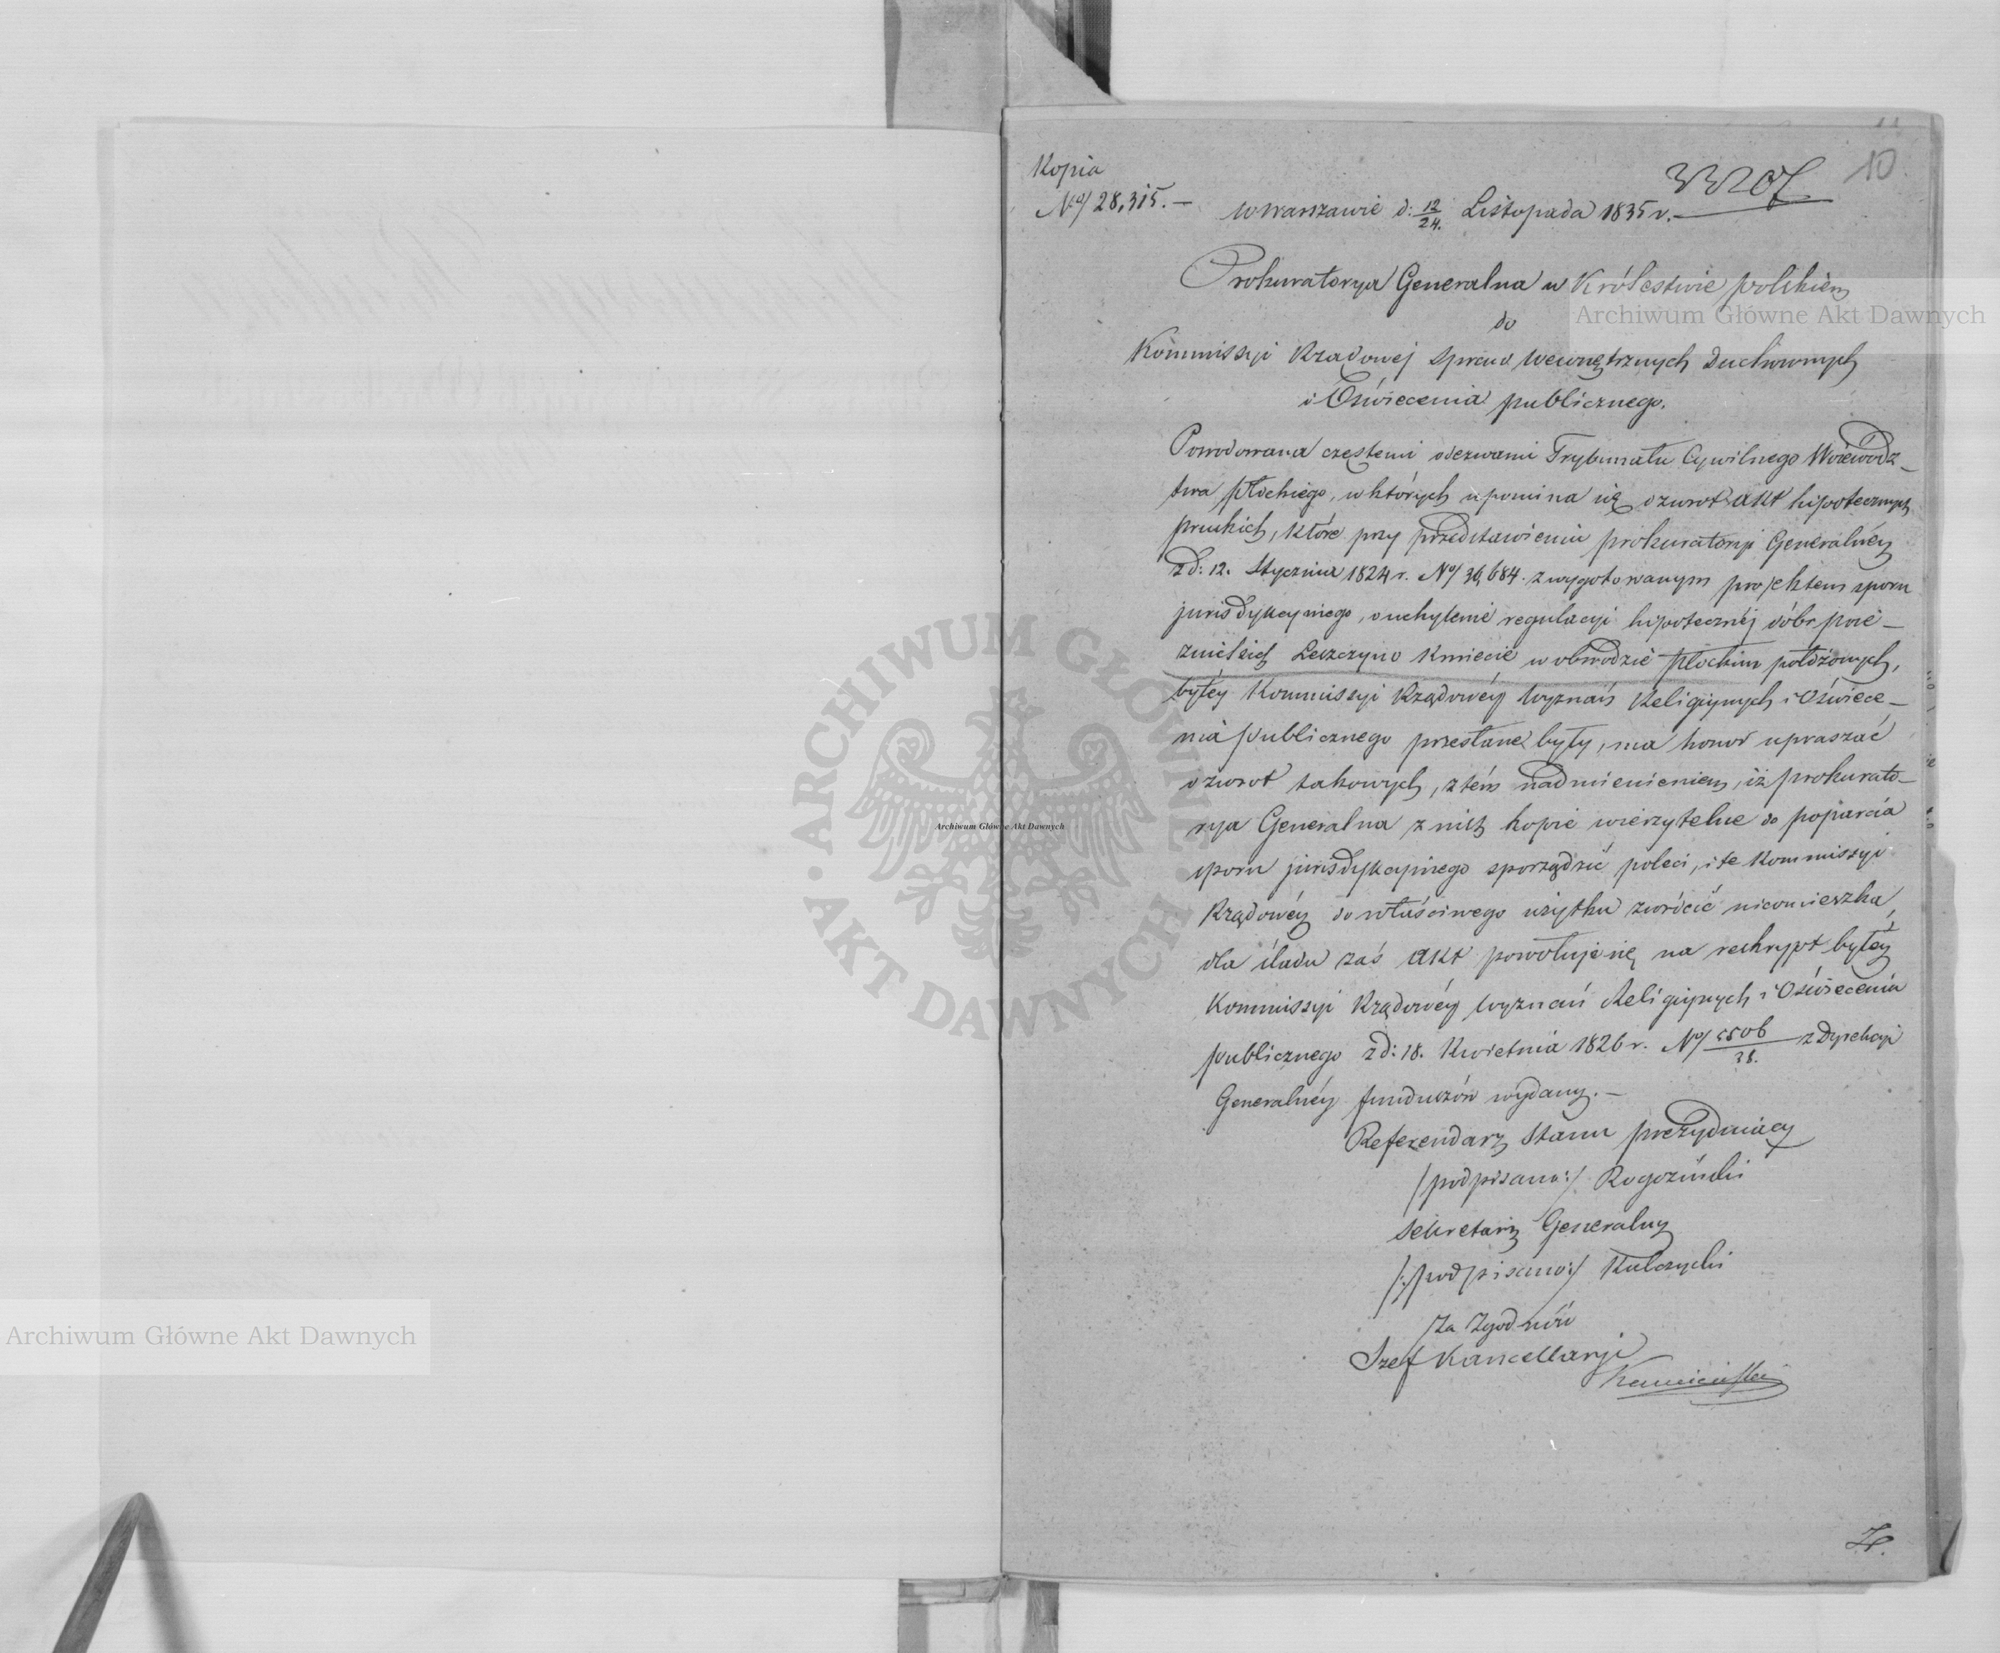 Kopia
No/ 28,315. —
10
w Warszawie d: 12/24. Listopada 1835 r. —
Prokuratorya Generalna w Królestwie polskiem
do
Kommissyi Rządowej Spraw Wewnętrznych Duchownych
i Oświecenia publicznego.
Powodowana częstemi odezwami Trybunału Cywilnego Woiewodz-
twa płockiego, w których upomina się o zwrot akt hipotecznych
pruskich, które przy przedstawieniu prokuratoryi Generalnéy
z d: 12. Stycznia 1824 r. No/ 36,684. z wygotowanym projektem sporu
jurisdykcyinego, o uchylenie regulacyi hipotecznéj dóbr poie-
zuickich Leszczyno Kmiecie w obwodzie płockim położonych,
byłéy Kommissyi Rządowéy Wyznań Religiynych i Oświece-
nia publicznego przesłane były, ma honor upraszać
o zwrot takowych, z tém nadmienieniem, iż prokurato-
rya Generalna z nich kopie wierzytelne do poparcia
sporu jurisdykcyinego sporządzić poleci, i te Kommissyi
Rządowéy do właściwego użytku zwrócić nieomieszka,
dla śladu zaś akt powołuje się na reskrypt byłéy
Kommissyi Rządowéy Wyznań Religiynych i Oświecenia
publicznego z d: 18. Kwietnia 1826 r. No/ 5506/38. z Dyrekcyi
Generalnéy funduszów wydany. —
Referendarz Stanu prezyduiący
/podpisano:/ Rogoziński
Sekretarz Generalny
/:podpisano:/ Kulczycki
Za Zgodność
Szef Kancellaryi
Kamieński
Archiwum Główne Akt Dawnych
Archiwum Główne Akt Dawnych
Archiwum Główne Akt Dawnych
ARCHIWUM GŁÓWNE
AKT DAWNYCH